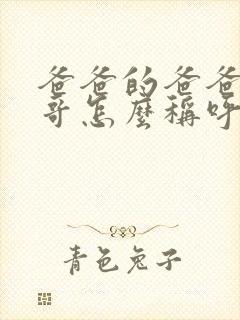 爸爸的爸爸
哥怎麼稱呼
青色兔子